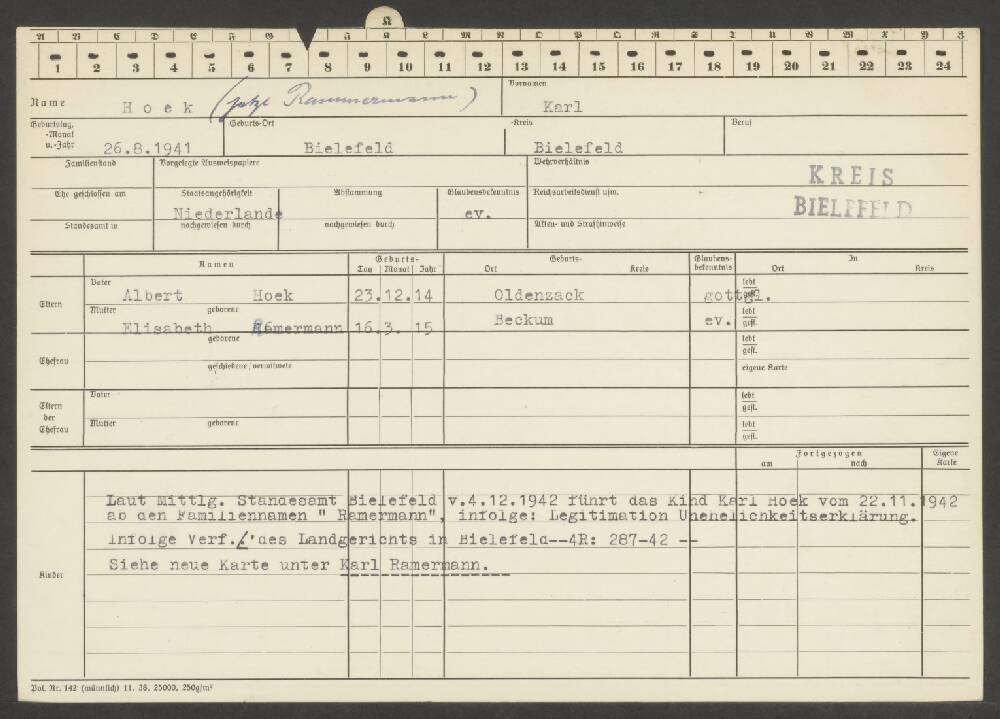 K
A B C D E F G J K L M N O P Q R S T U V W X Y Z
1 2 3 4 5 6 7 8 9 10 11 12 13 14 15 16 17 18 19 20 21 22 23 24
Name Hoek (jetzt Rammermann) Vornamen Karl
Geburtstag, -Monat u.-Jahr 26.8.1941 Geburts-Ort Bielefeld -Kreis Bielefeld Beruf
Familienstand Vorgelegte Ausweispapiere Wehrverhältnis
KREIS
BIELEFELD
Ehe geschlossen am Staatsangehörigkeit Abstammung Glaubensbekenntnis Reichsarbeitsdienst usw.
Niederlande ev.
Standesamt in nachgewiesen durch nachgewiesen durch Akten- und Strafhinweise
Namen Geburts- Tag Monat Jahr Geburts- Ort Kreis Glaubens-bekenntnis In Ort Kreis
Eltern Vater Albert Hoek 23.12.14 Oldenzack gottgl. lebt gest.
Mutter geborene Elisabeth Ramermann 16.3. 15 Beckum ev. lebt gest.
Ehefrau geborene lebt gest.
geschiedene/verwitwete eigene Karte
Eltern der Ehefrau Vater lebt gest.
Mutter geborene lebt gest.
Fortgezogen am nach Eigene Karte
Kinder
Laut Mittlg. Standesamt Bielefeld v.4.12.1942 führt das Kind Karl Hoek vom 22.11.1942
ab den Familiennamen " Ramermann", infolge: Legitimation Unehelichkeitserklärung.
Infolge Verf. des Landgerichts in Bielefeld--4R: 287-42 --
Siehe neue Karte unter Karl Ramermann.
Pol. Nr. 142 (männlich) 11. 38. 25000. 250g/m²